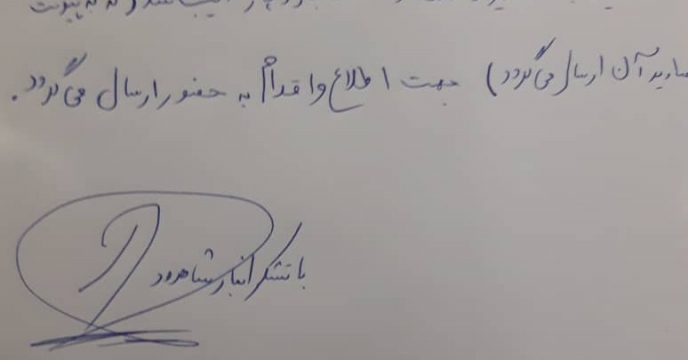 که به پیوست
تصاویر آن ارسال می گردد) جهت اطلاع و اقدام به حضور ارسال می گردد.
با تشکر انبار شاهرود